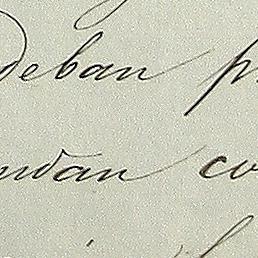 deban p
ndan co